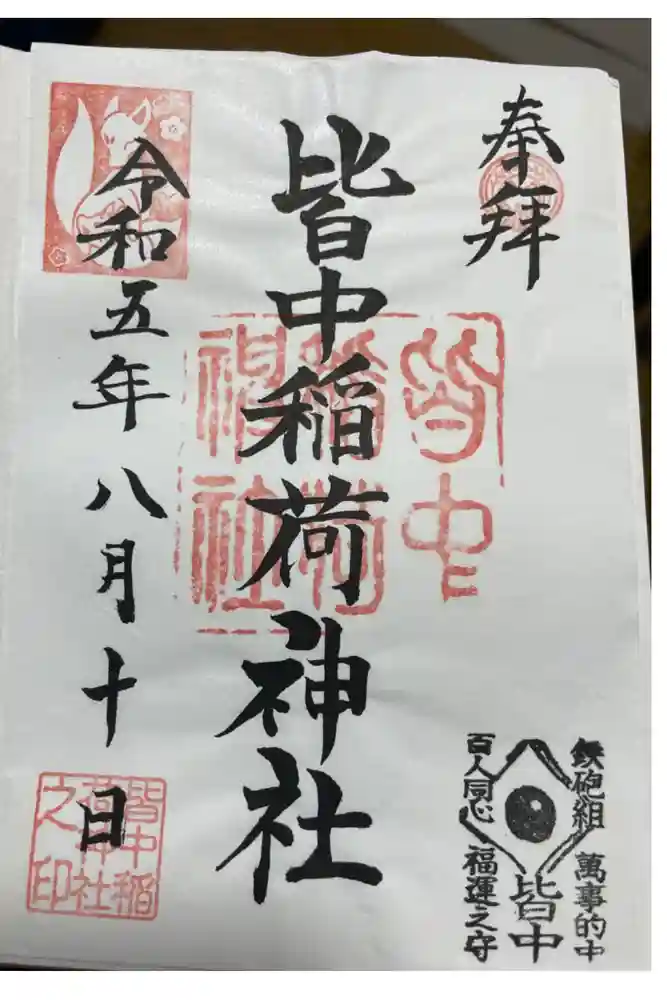 奉拝
皆中稲荷神社
令和五年八月十日
皆中
稲荷
神社
鉄砲組 萬事的中
皆中
百人同心 福運之守
皆中稲
荷神社
之印